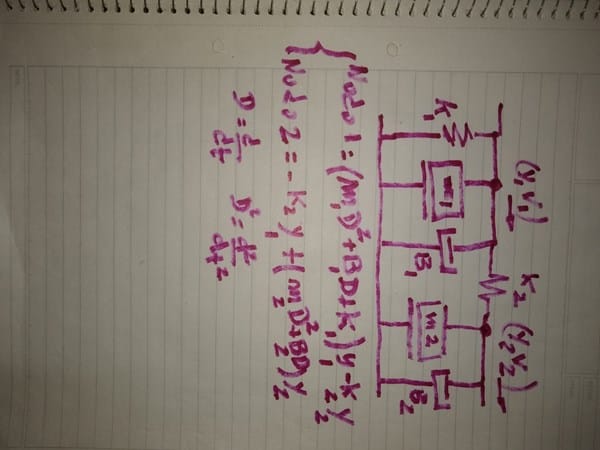 (y₁ v₁) K₂ (y₂ v₂)
K₁ m₁ B₁ m2 B₂
Nodo 1 = (m₁D²+B₁D+K₁)y₁-K₂y₂
Nodo 2 = -K₂y₁+(m₂D²+B₂D)y₂
D = d/dt D² = d²/dt²